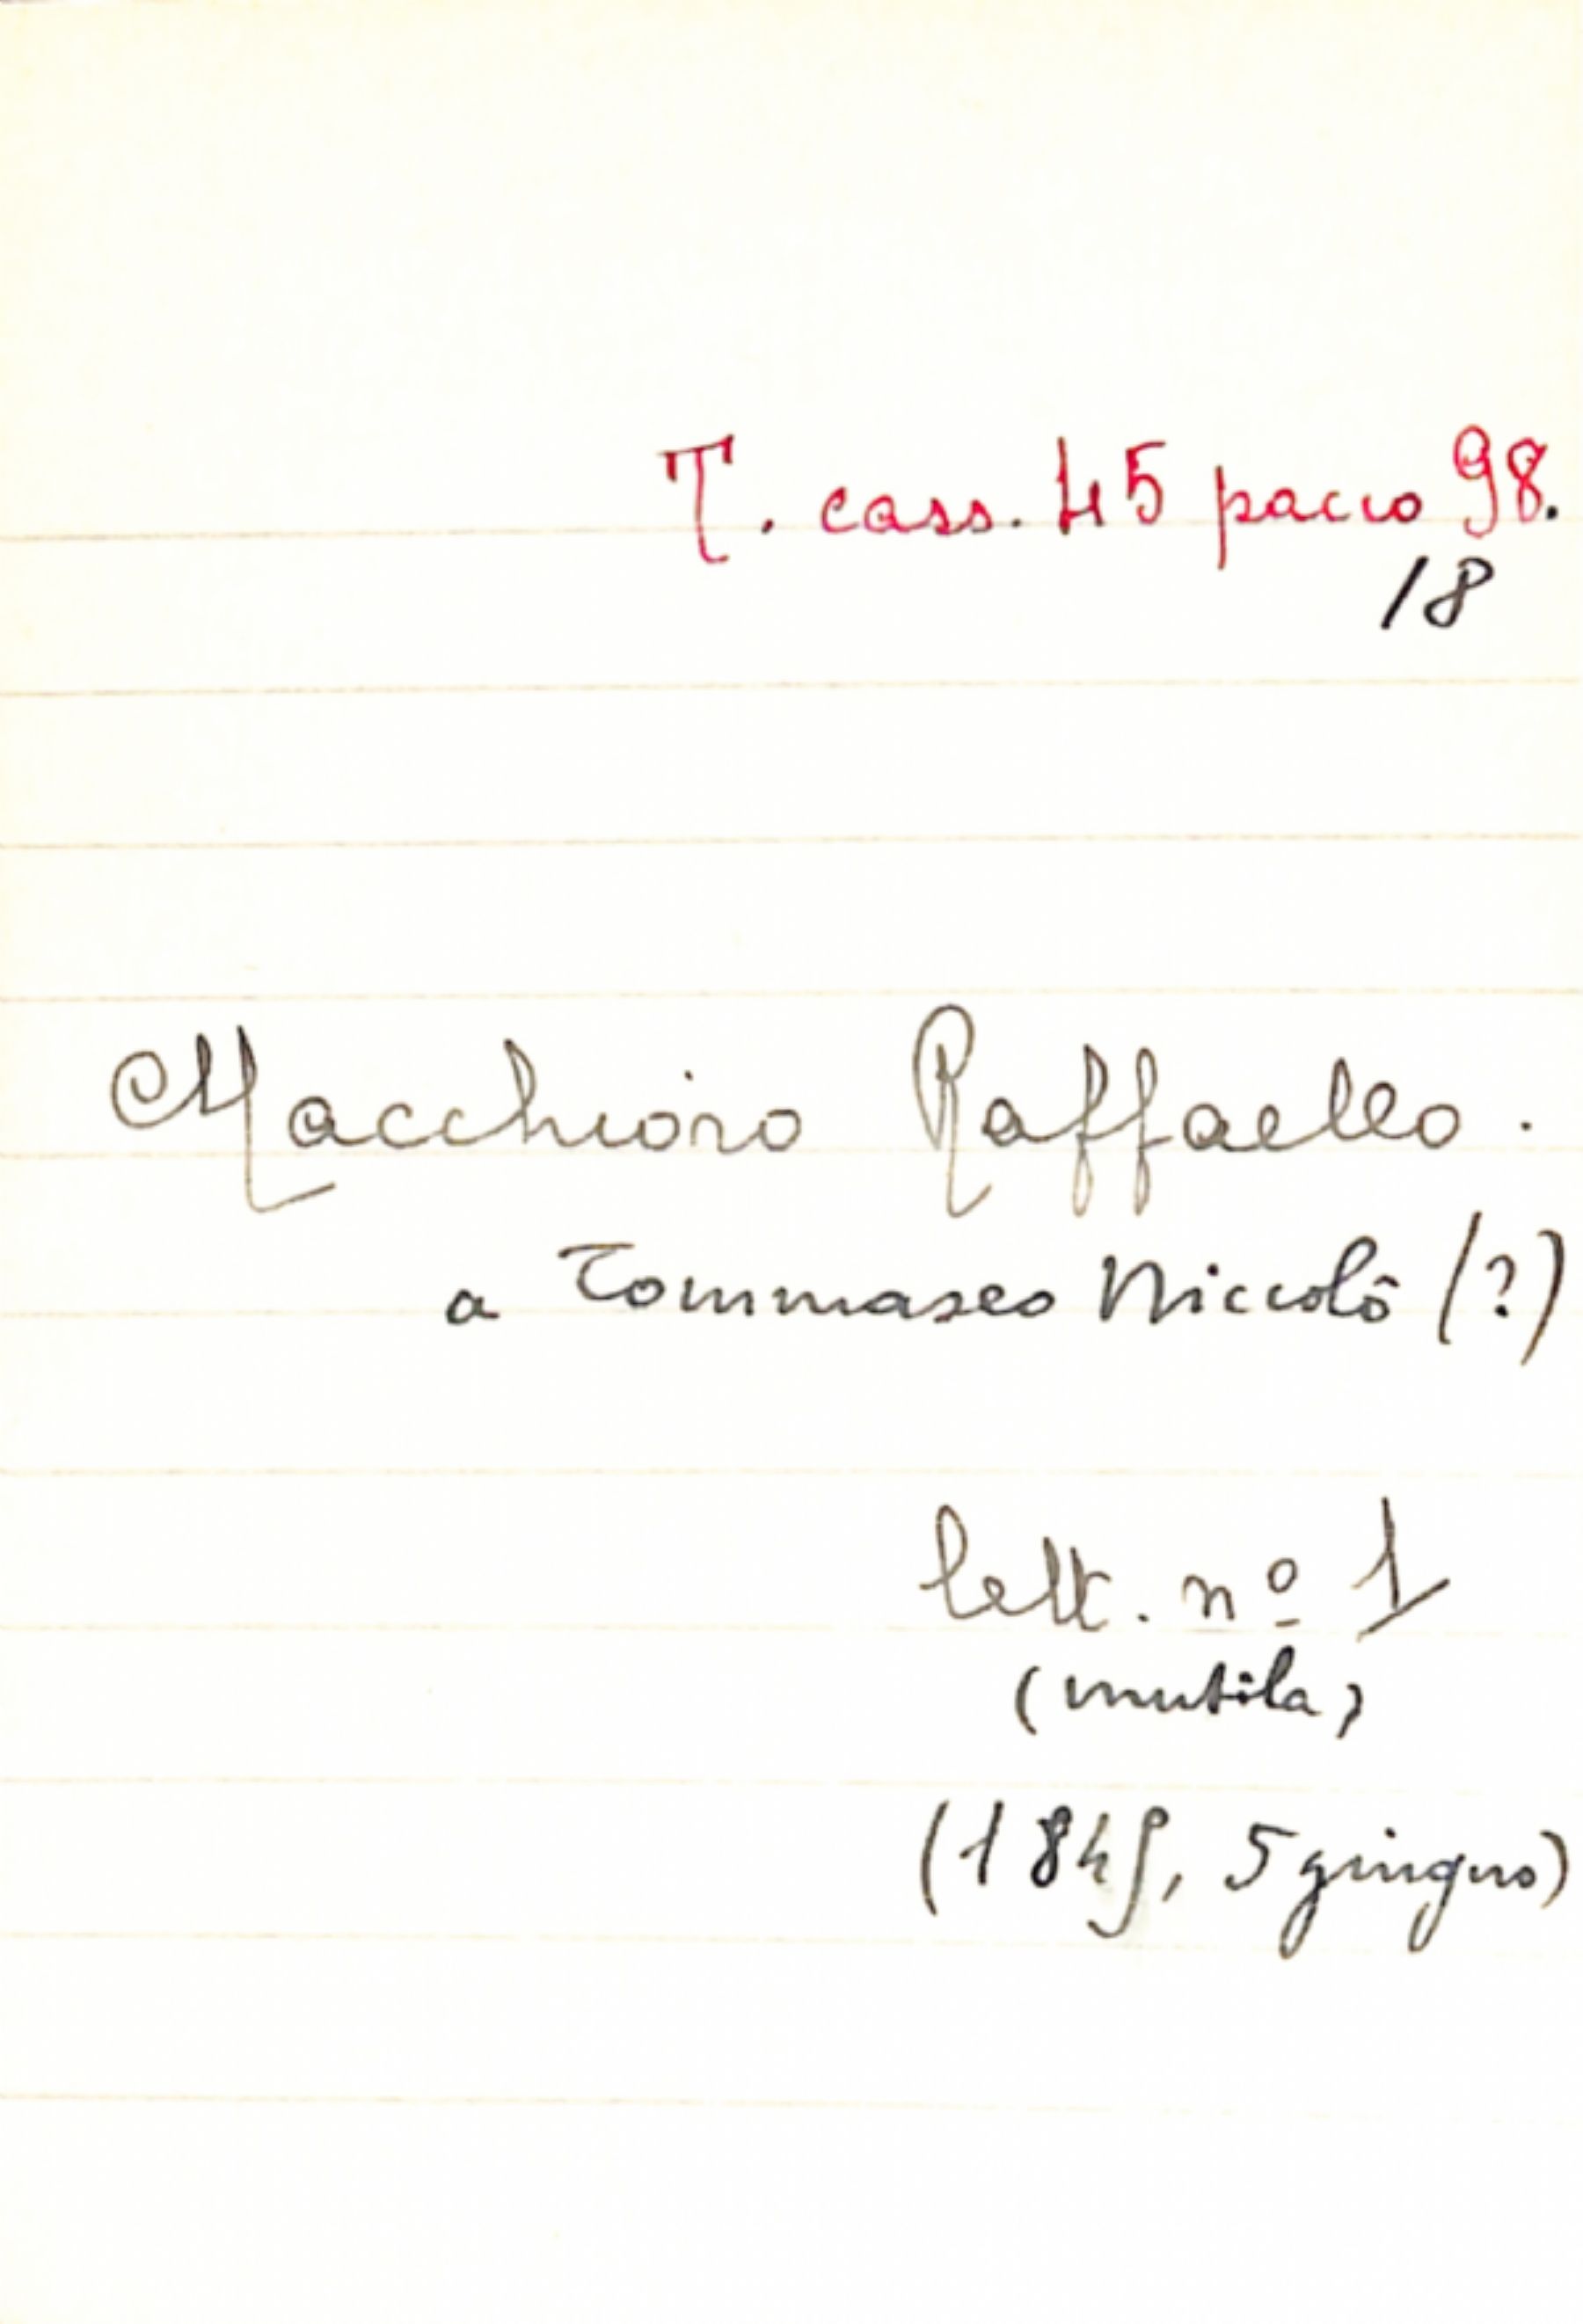 T. cass. 45 pacco 98.
18
Macchioro Raffaello.
a Tommaseo Niccolò (?)
lett. nº 1
(mutila)
(1849, 5 giugno)